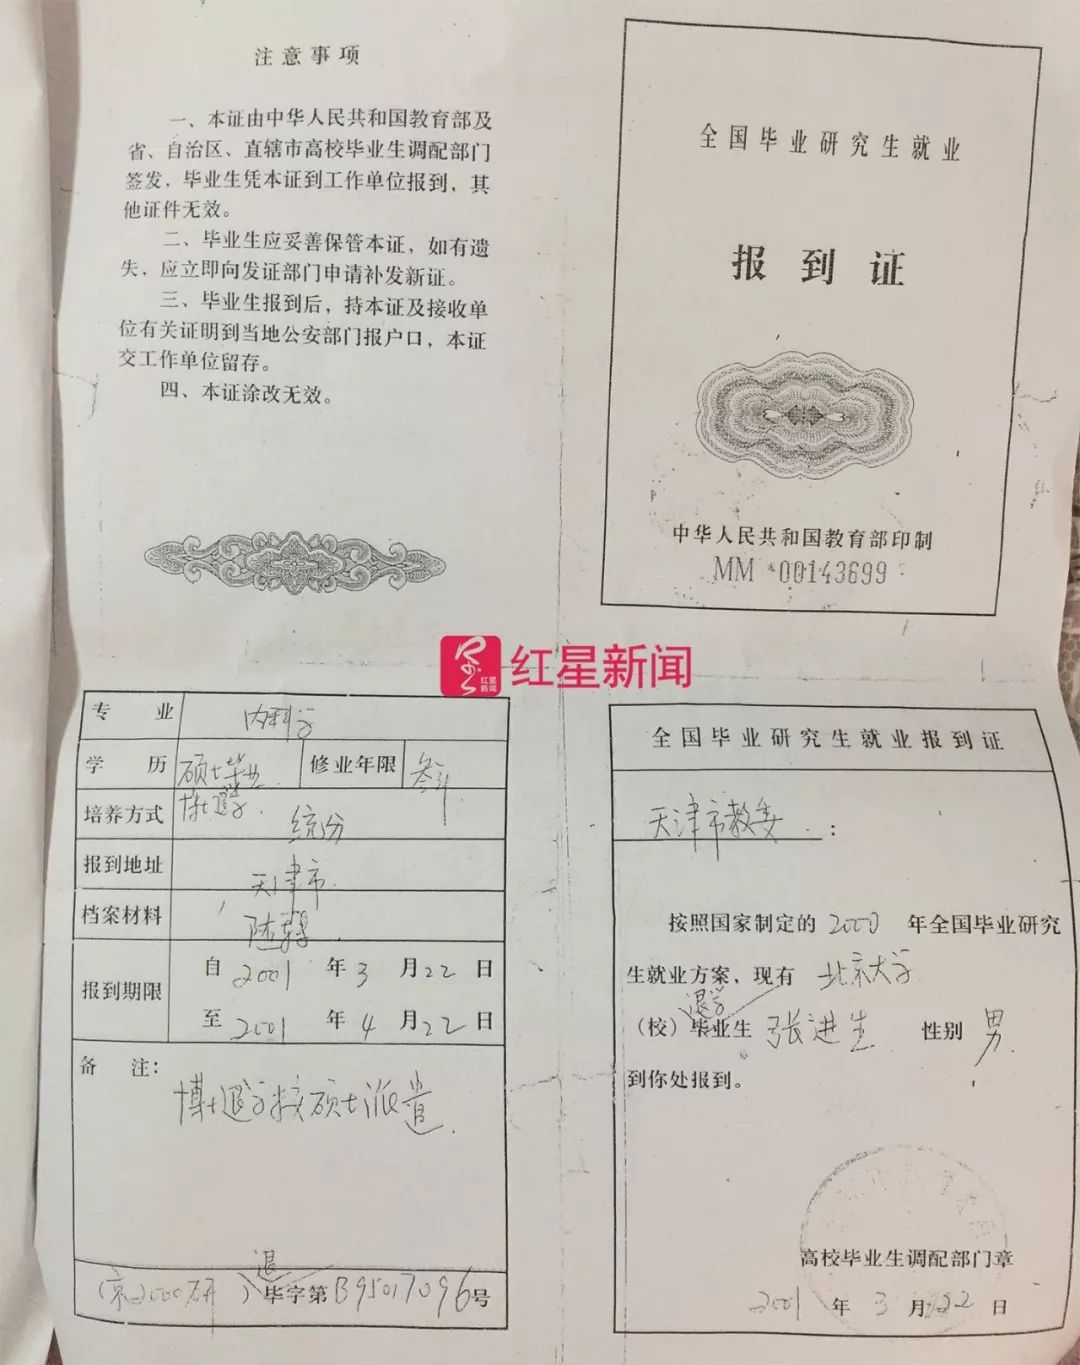 注意事项
一、本证由中华人民共和国教育部及
省、自治区、直辖市高校毕业生调配部门
签发，毕业生凭本证到工作单位报到，其
他证件无效。
二、毕业生应妥善保管本证，如有遗
失，应立即向发证部门申请补发新证。
三、毕业生报到后，持本证及接收单
位有关证明到当地公安部门报户口，本证
交工作单位留存。
四、本证涂改无效。
全国毕业研究生就业
报到证
中华人民共和国教育部印制
MM 00143699
红星新闻
红星新闻
专 业 内科学
学 历 硕士毕业 博士退学. 修业年限 叁年
培养方式 统分
报到地址 天津市.
档案材料 随转.
报到期限 自2001年3月22日
至2001年4月22日
备 注：
博士退学按硕士派遣.
退
(京2000研)毕字第B95017096号
全国毕业研究生就业报到证
天津市教委：
按照国家制定的2000年全国毕业研究
生就业方案，现有 北京大学
退学
（校）毕业生 张进生 性别 男.
到你处报到。
高校毕业生调配部门章
2001年3月22日